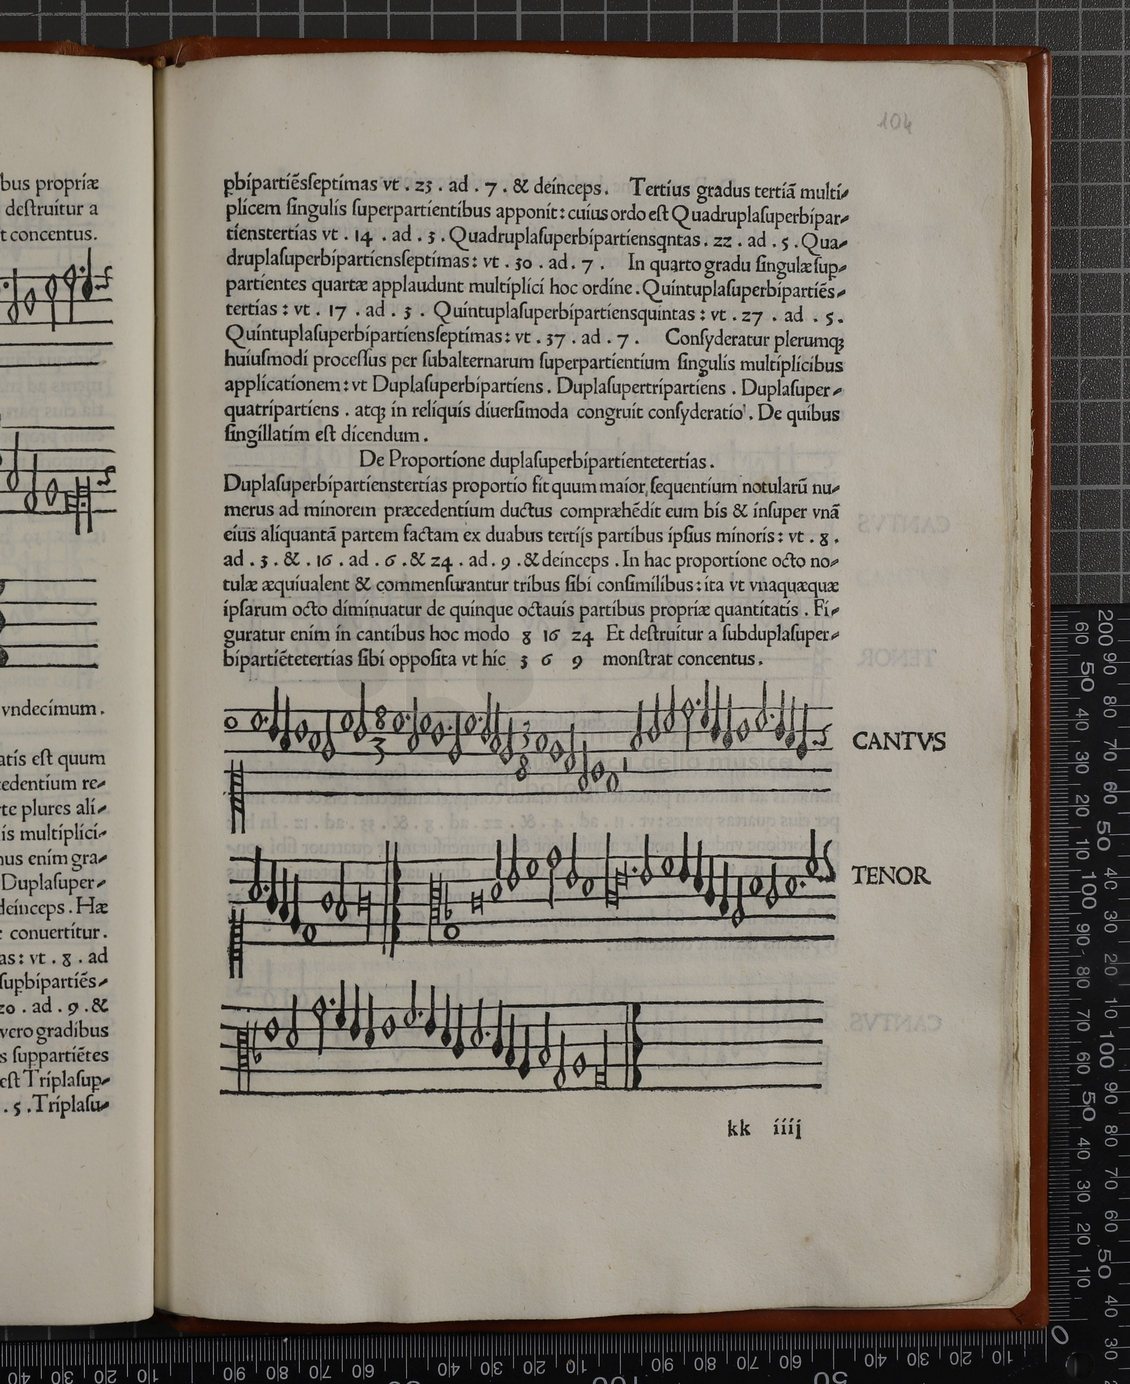 104
bus propriæ
destruitur a
t concentus.
vndecimum.
atis est quum
cedentium re⸗
rte plures ali⸗
is multiplici⸗
nus enim gra⸗
Duplasuper⸗
deinceps. Hæ
conuertitur.
as: vt . 8 . ad
supbipartiēs⸗
20 . ad . 9 . &
vero gradibus
s suppartiētes
est Triplasup⸗
. 5 . Triplasu⸗
ꝑbipartiēsseptimas vt . 23 . ad . 7 . & deinceps. Tertius gradus tertiā multi⸗
plicem singulis superpartientibus apponit: cuius ordo est Quadruplasuperbipar⸗
tienstertias vt . 14 . ad . 3 . Quadruplasuperbipartiensqntas . 22 . ad . 5 . Qua⸗
druplasuperbipartiensseptimas: vt . 30 . ad . 7 . In quarto gradu singulæ sup⸗
partientes quartæ applaudunt multiplici hoc ordine. Quintuplasuperbipartiēs⸗
tertias: vt . 17 . ad . 3 . Quintuplasuperbipartiensquintas: vt . 27 . ad . 5 .
Quintuplasuperbipartiensseptimas: vt . 37 . ad . 7 . Consyderatur plerumqꝫ
huiusmodi processus per subalternarum superpartientium singulis multiplicibus
applicationem: vt Duplasuperbipartiens. Duplasupertripartiens. Duplasuper⸗
quatripartiens. atqꝫ in reliquis diuersimoda congruit consyderatio. De quibus
singillatim est dicendum.
De Proportione duplasuperbipartientetertias.
Duplasuperbipartienstertias proportio fit quum maior sequentium notularū nu⸗
merus ad minorem præcedentium ductus compræhēdit eum bis & insuper vnā
eius aliquantā partem factam ex duabus tertijs partibus ipsius minoris: vt . 8 .
ad . 3 . & . 16 . ad . 6 . & 24 . ad . 9 . & deinceps. In hac proportione octo no⸗
tulæ æquiualent & commensurantur tribus sibi consimilibus: ita vt vnaquæquæ
ipsarum octo diminuatur de quinque octauis partibus propriæ quantitatis. Fi⸗
guratur enim in cantibus hoc modo 8 16 24 Et destruitur a subduplasuper⸗
bipartiētetertias sibi opposita vt hic 3 6 9 monstrat concentus.
8 3
3 8
CANTVS
TENOR
kk iiij